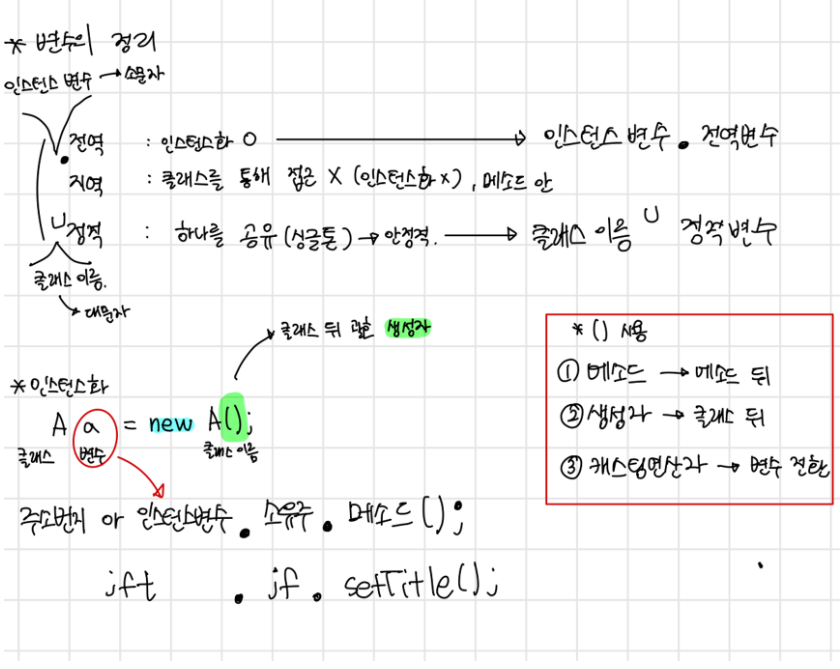 * 변수의 정리
인스턴스 변수 → 소문자
. 전역 : 인스턴스화 O → 인스턴스 변수 . 전역변수
지역 : 클래스를 통해 접근 X (인스턴스화 X), 메소드 안
∪ 정적 : 하나를 공유 (싱글톤) → 안정적. → 클래스 이름 ∪ 정적변수
클래스 이름.
→ 대문자
클래스 뒤 괄호 생성자
* 인스턴스화
A a = new A();
클래스 변수 클래스 이름
주소번지 or 인스턴스변수 . 소유주 . 메소드();
jft . jf . setTitle();
* () 사용
① 메소드 → 메소드 뒤
② 생성자 → 클래스 뒤
③ 캐스팅연산자 → 변수 전환